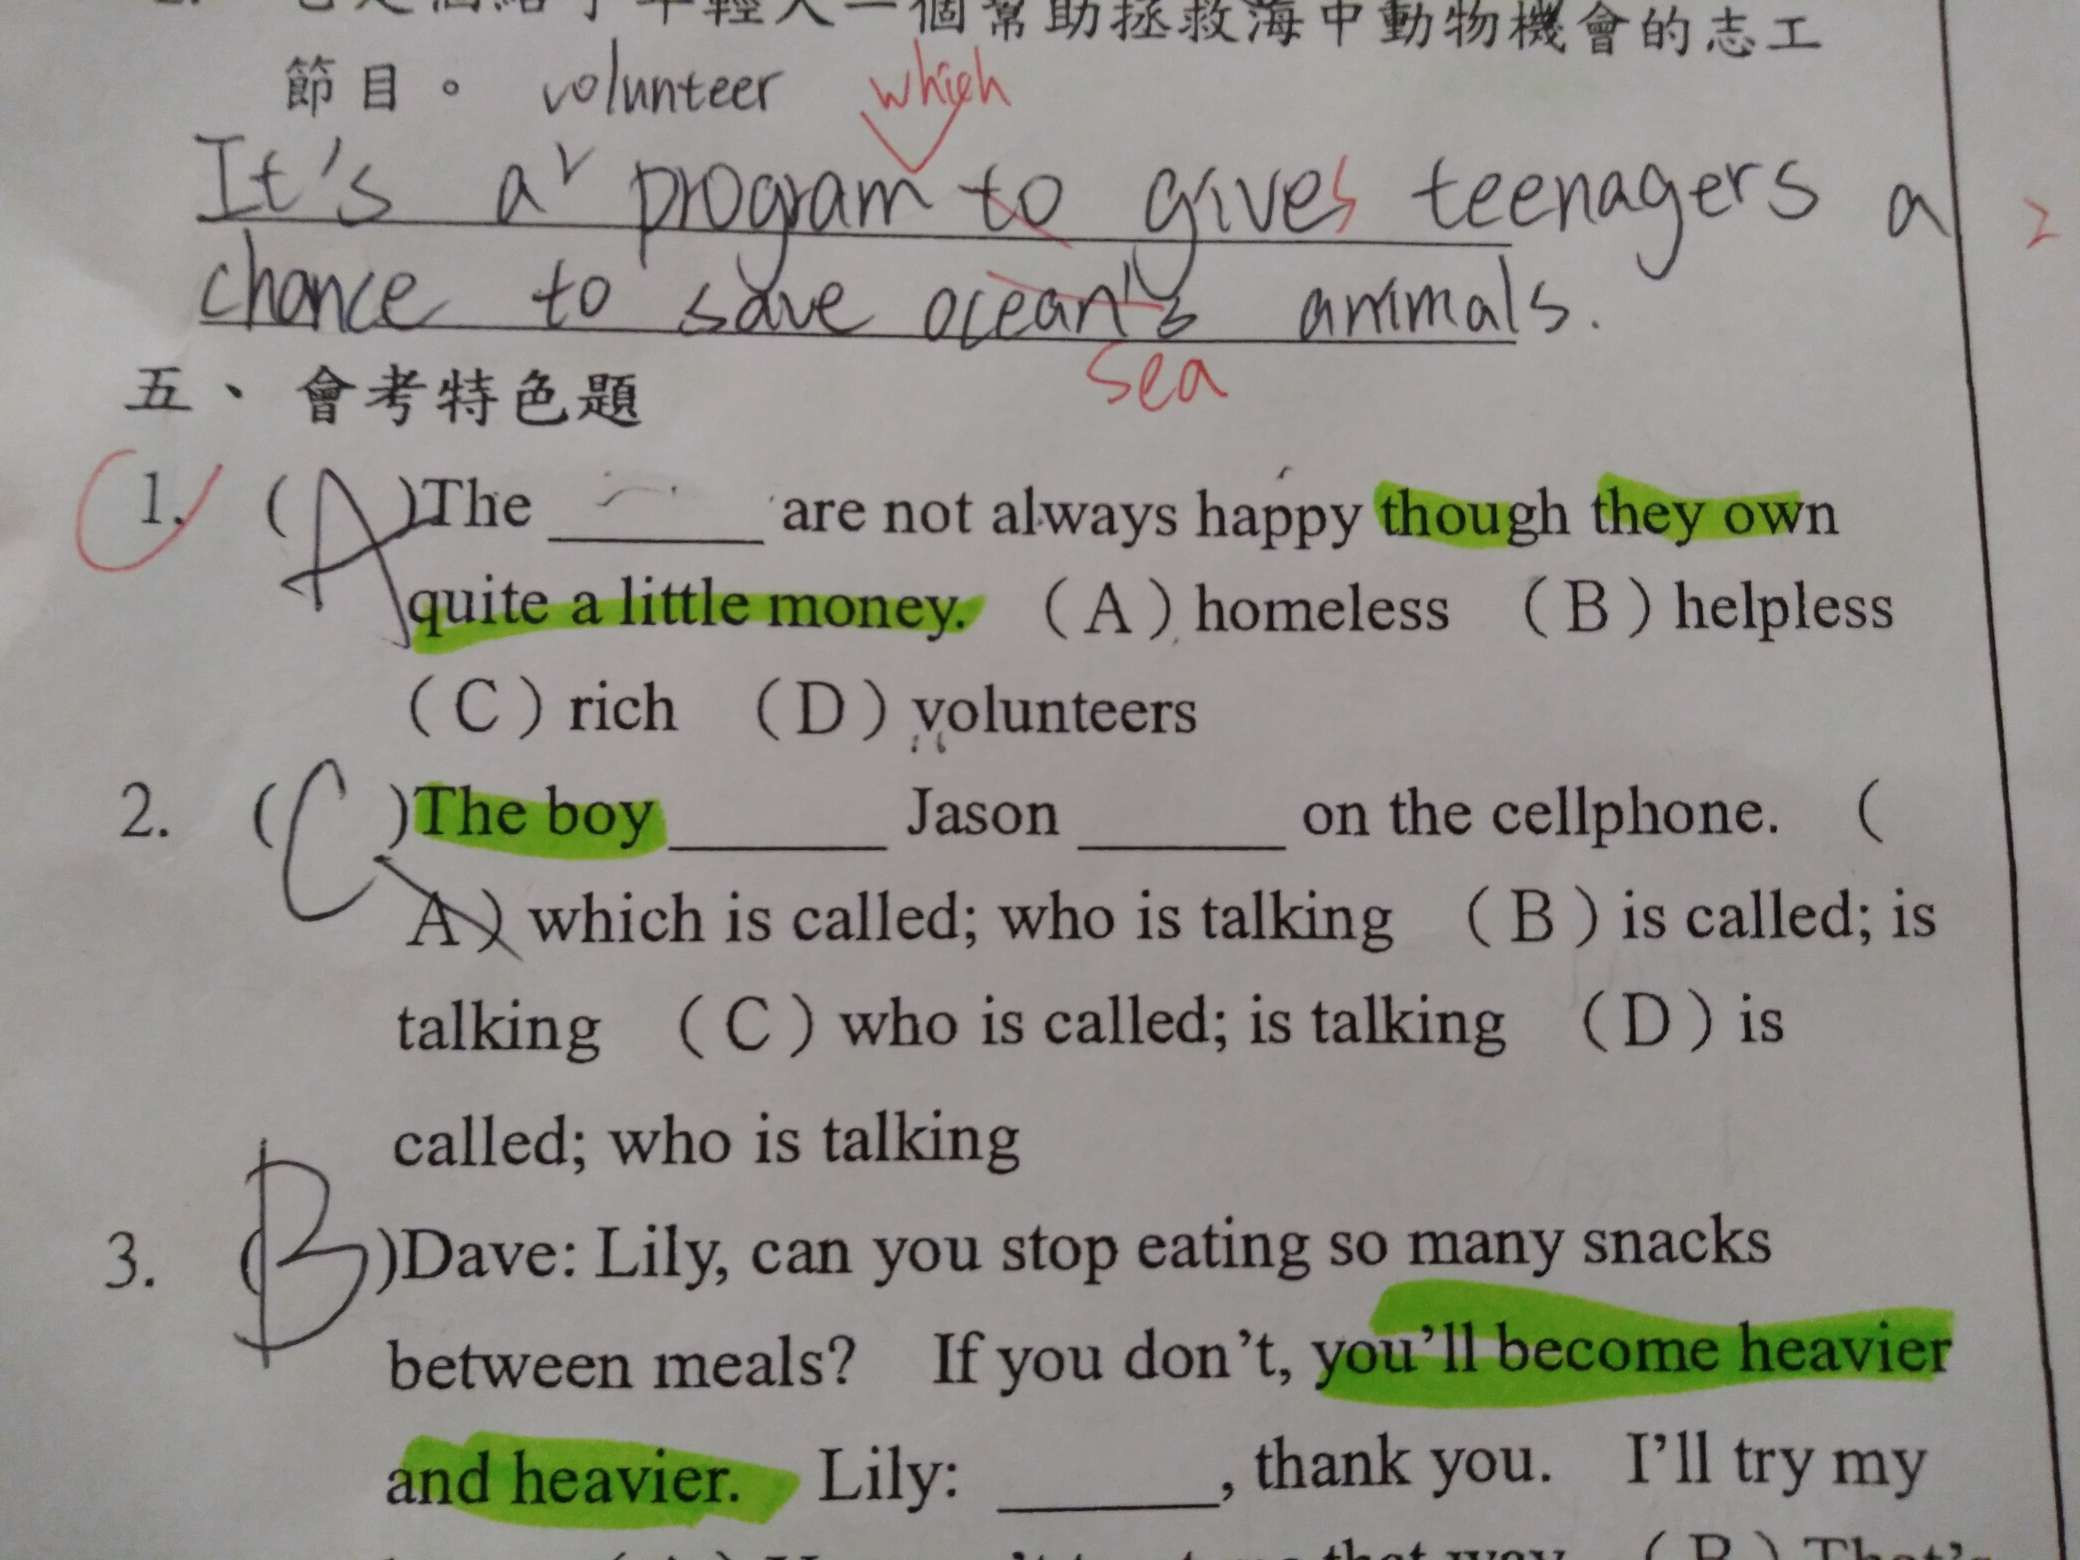 個給了年輕人一個幫助拯救海中動物機會的志工
節目。 volunteer which
It's a v program to gives teenagers a 2
chance to save ocean's animals.
sea
五、會考特色題
1. (A)The ______ are not always happy though they own
quite a little money. (A)homeless (B)helpless
(C)rich (D)volunteers
2. (C)The boy ______ Jason ______ on the cellphone. (
A) which is called; who is talking (B)is called; is
talking (C)who is called; is talking (D)is
called; who is talking
3. (B)Dave: Lily, can you stop eating so many snacks
between meals? If you don't, you'll become heavier
and heavier. Lily: ______, thank you. I'll try my
that way. (B)That's